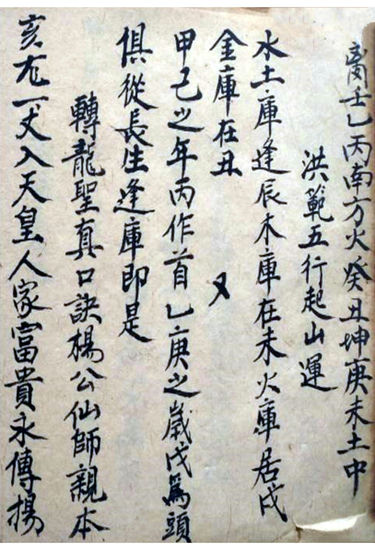 离壬乙丙南方火癸丑坤庚未土中
洪範五行起山運
水土庫逢辰木庫在未火庫居戌
金庫在丑 又
甲己之年丙作首乙庚之歲戊為頭
俱從長生逢庫即是
轉龍聖真口訣楊公仙師親本
亥龙一丈入天皇人家富貴永傳揚